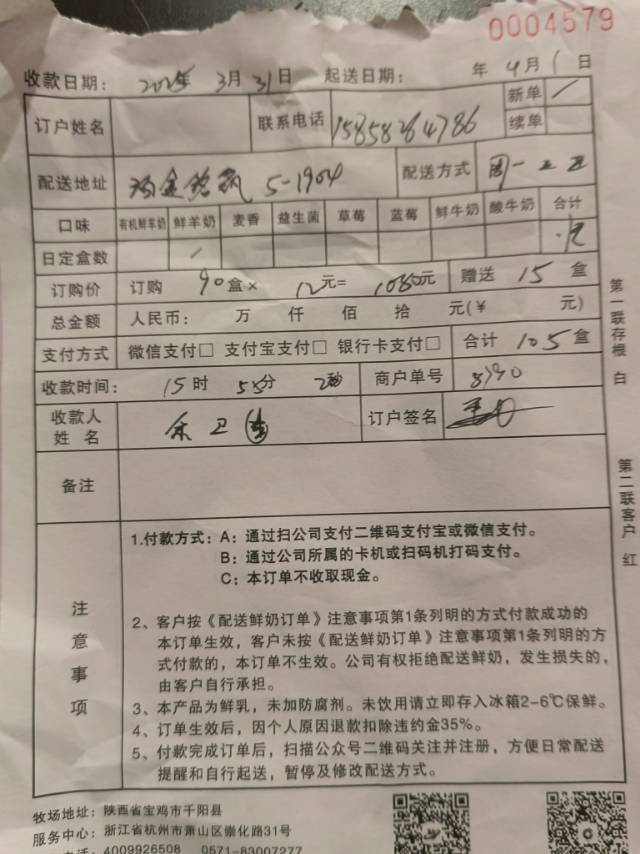 0004579
收款日期： 2025年 3月 31日 起送日期： 年 4月 1日
订户姓名 联系电话 15858264786 新单 ／
续单
配送地址 5-1904 配送方式 周一 三 五
口味 有机鲜羊奶 鲜羊奶 麦香 益生菌 草莓 蓝莓 鲜牛奶 酸牛奶 合计
日定盒数
订购价 订购 90盒× 12元= 1080元 赠送 15 盒
总金额 人民币： 万 仟 佰 拾 元(￥ 元)
支付方式 微信支付□ 支付宝支付□ 银行卡支付□ 合计 105 盒
收款时间： 15时 55分 2秒 商户单号 8390
收款人
姓 名 余卫 订户签名
备注
注意事项
1.付款方式：A：通过扫公司支付二维码支付宝或微信支付。
B：通过公司所属的卡机或扫码机打码支付。
C：本订单不收取现金。
2、客户按《配送鲜奶订单》注意事项第1条列明的方式付款成功的
本订单生效，客户未按《配送鲜奶订单》注意事项第1条列明的方
式付款的，本订单不生效。公司有权拒绝配送鲜奶，发生损失的，
由客户自行承担。
3、本产品为鲜乳，未加防腐剂。未饮用请立即存入冰箱2-6℃保鲜。
4、订单生效后，因个人原因退款扣除违约金35%。
5、付款完成订单后，扫描公众号二维码关注并注册，方便日常配送
提醒和自行起送，暂停及修改配送方式。
牧场地址：陕西省宝鸡市千阳县
服务中心：浙江省杭州市萧山区崇化路31号
4009926508 0571-83007277
第一联存根 白
第二联客户 红